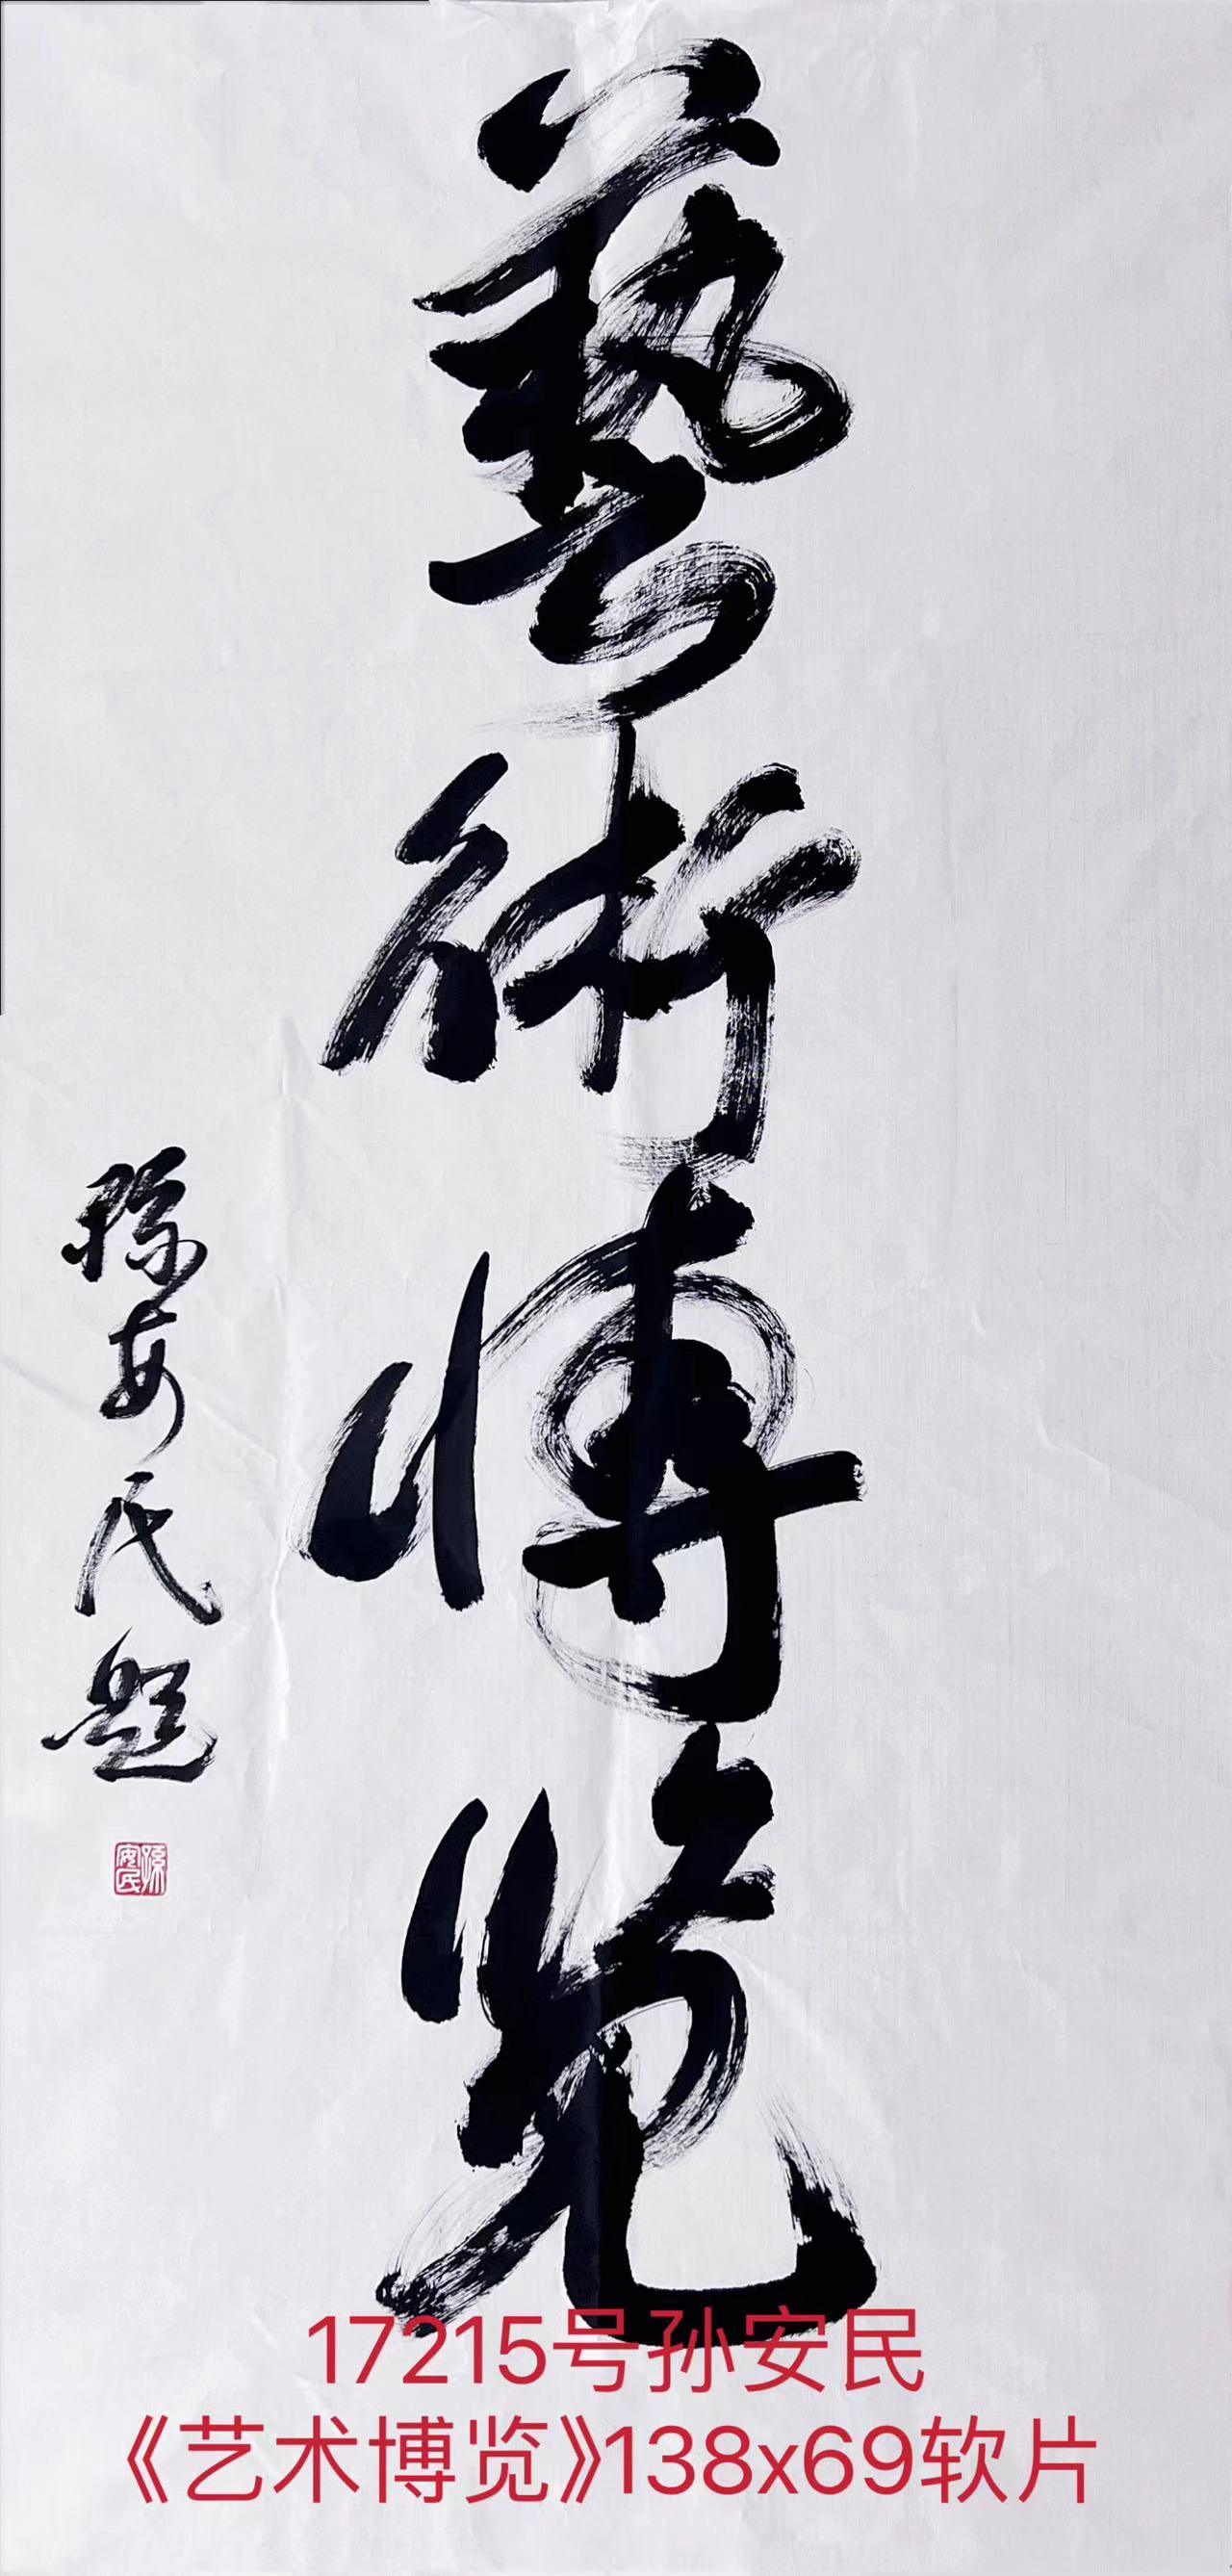 藝術博览
孫安民题
孫安民
17215号孙安民
《艺术博览》138x69软片